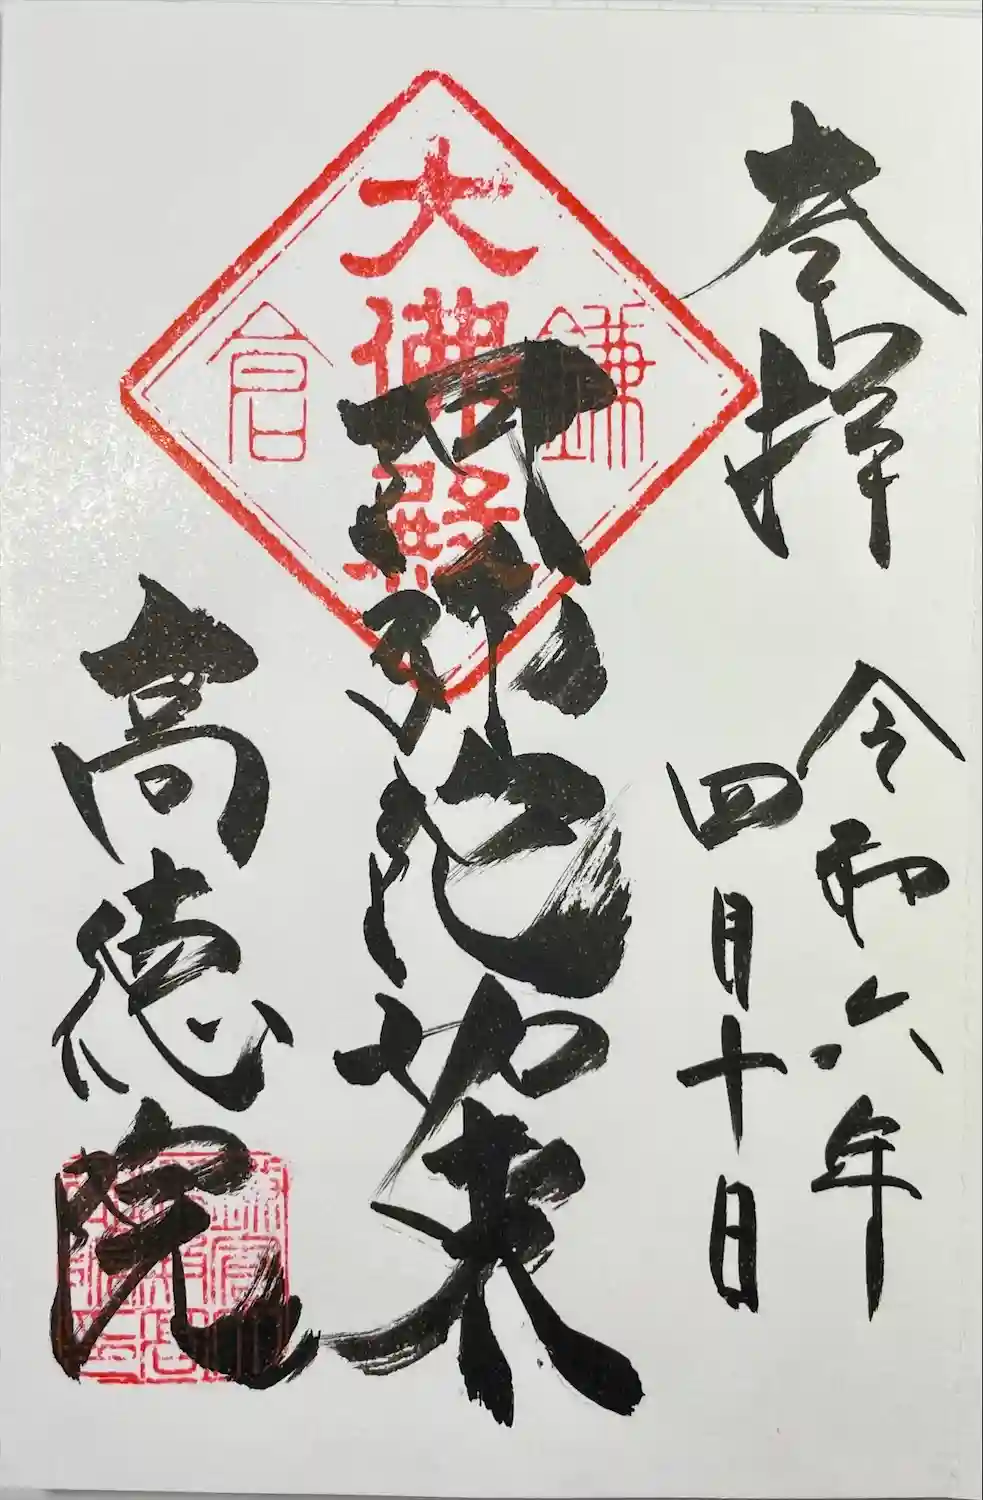 奉拝
令和六年
四月十日
鎌倉
大佛殿
阿弥陀如来
高徳院